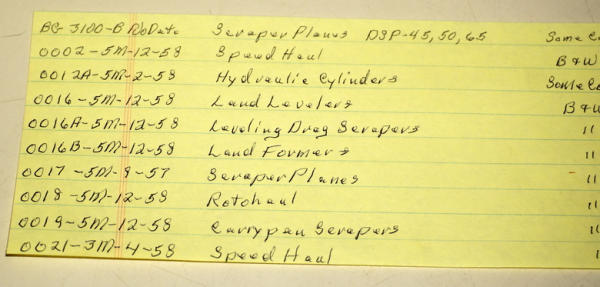 BG-J100-B No Date Scraper Planes DSP-45, 50, 65 Some Co
0002-5M-12-58 Speed Haul B&W
0012A-5M-2-58 Hydraulic Cylinders Some Co
0016-5M-12-58 Land Levelers B&W
0016A-5M-12-58 Leveling Drag Scrapers "
0016B-5M-12-58 Land Formers "
0017-5M-9-57 Scraper Planes "
0018-5M-12-58 Rotohaul "
0019-5M-12-58 Carrypan Scrapers "
0021-3M-4-58 Speed Haul "